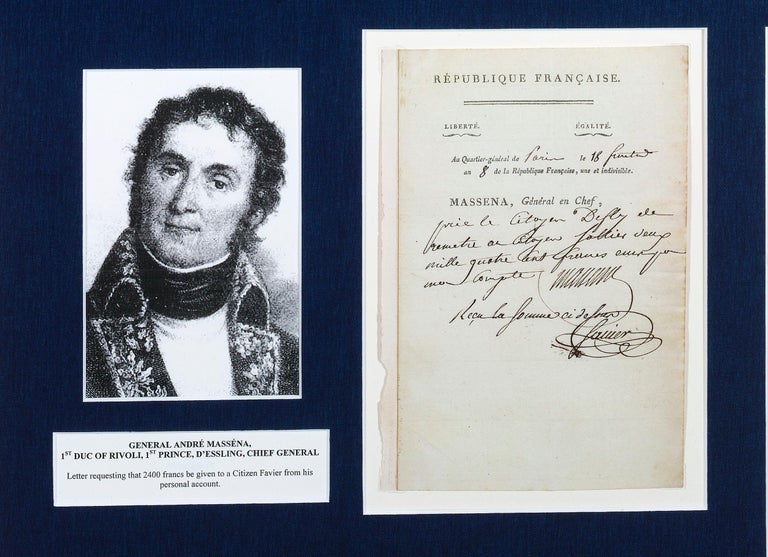 GENERAL ANDRÉ MASSÉNA,
1ST DUC OF RIVOLI, 1ST PRINCE, D'ESSLING, CHIEF GENERAL
Letter requesting that 2400 francs be given to a Citizen Favier from his
personal account.
RÉPUBLIQUE FRANÇAISE.
LIBERTÉ. ÉGALITÉ.
Au Quartier-général de Paris le 18
an 8 de la République Française, une et indivisible.
MASSENA, Général en Chef,
prie le Citoyen de
remettre au Citoyen deux
mille quatre cent francs
mon Compte Massena
Reçu la Somme ci dessus
Favier